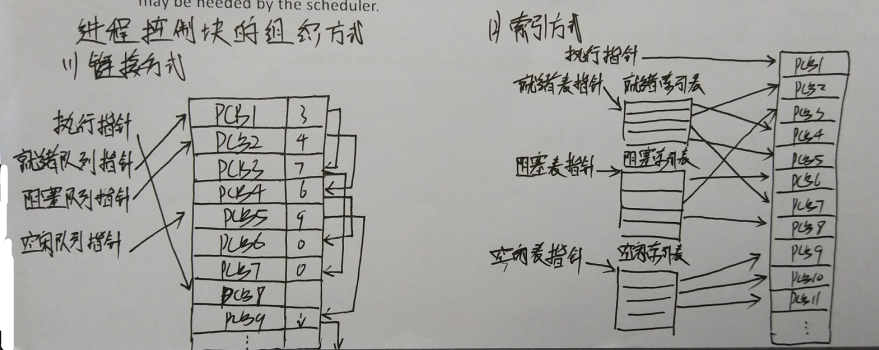 may be needed by the scheduler.
进程控制块的组织方式
(1) 链接方式
执行指针
就绪队列指针
阻塞队列指针
空闲队列指针
PCB1 3
PCB2 4
PCB3 7
PCB4 6
PCB5 9
PCB6 0
PCB7 0
PCB8
PCB9
⋮
(2) 索引方式
执行指针
就绪表指针 就绪索引表
阻塞表指针 阻塞索引表
空闲表指针 空闲索引表
PCB1
PCB2
PCB3
PCB4
PCB5
PCB6
PCB7
PCB8
PCB9
PCB10
PCB11
⋮